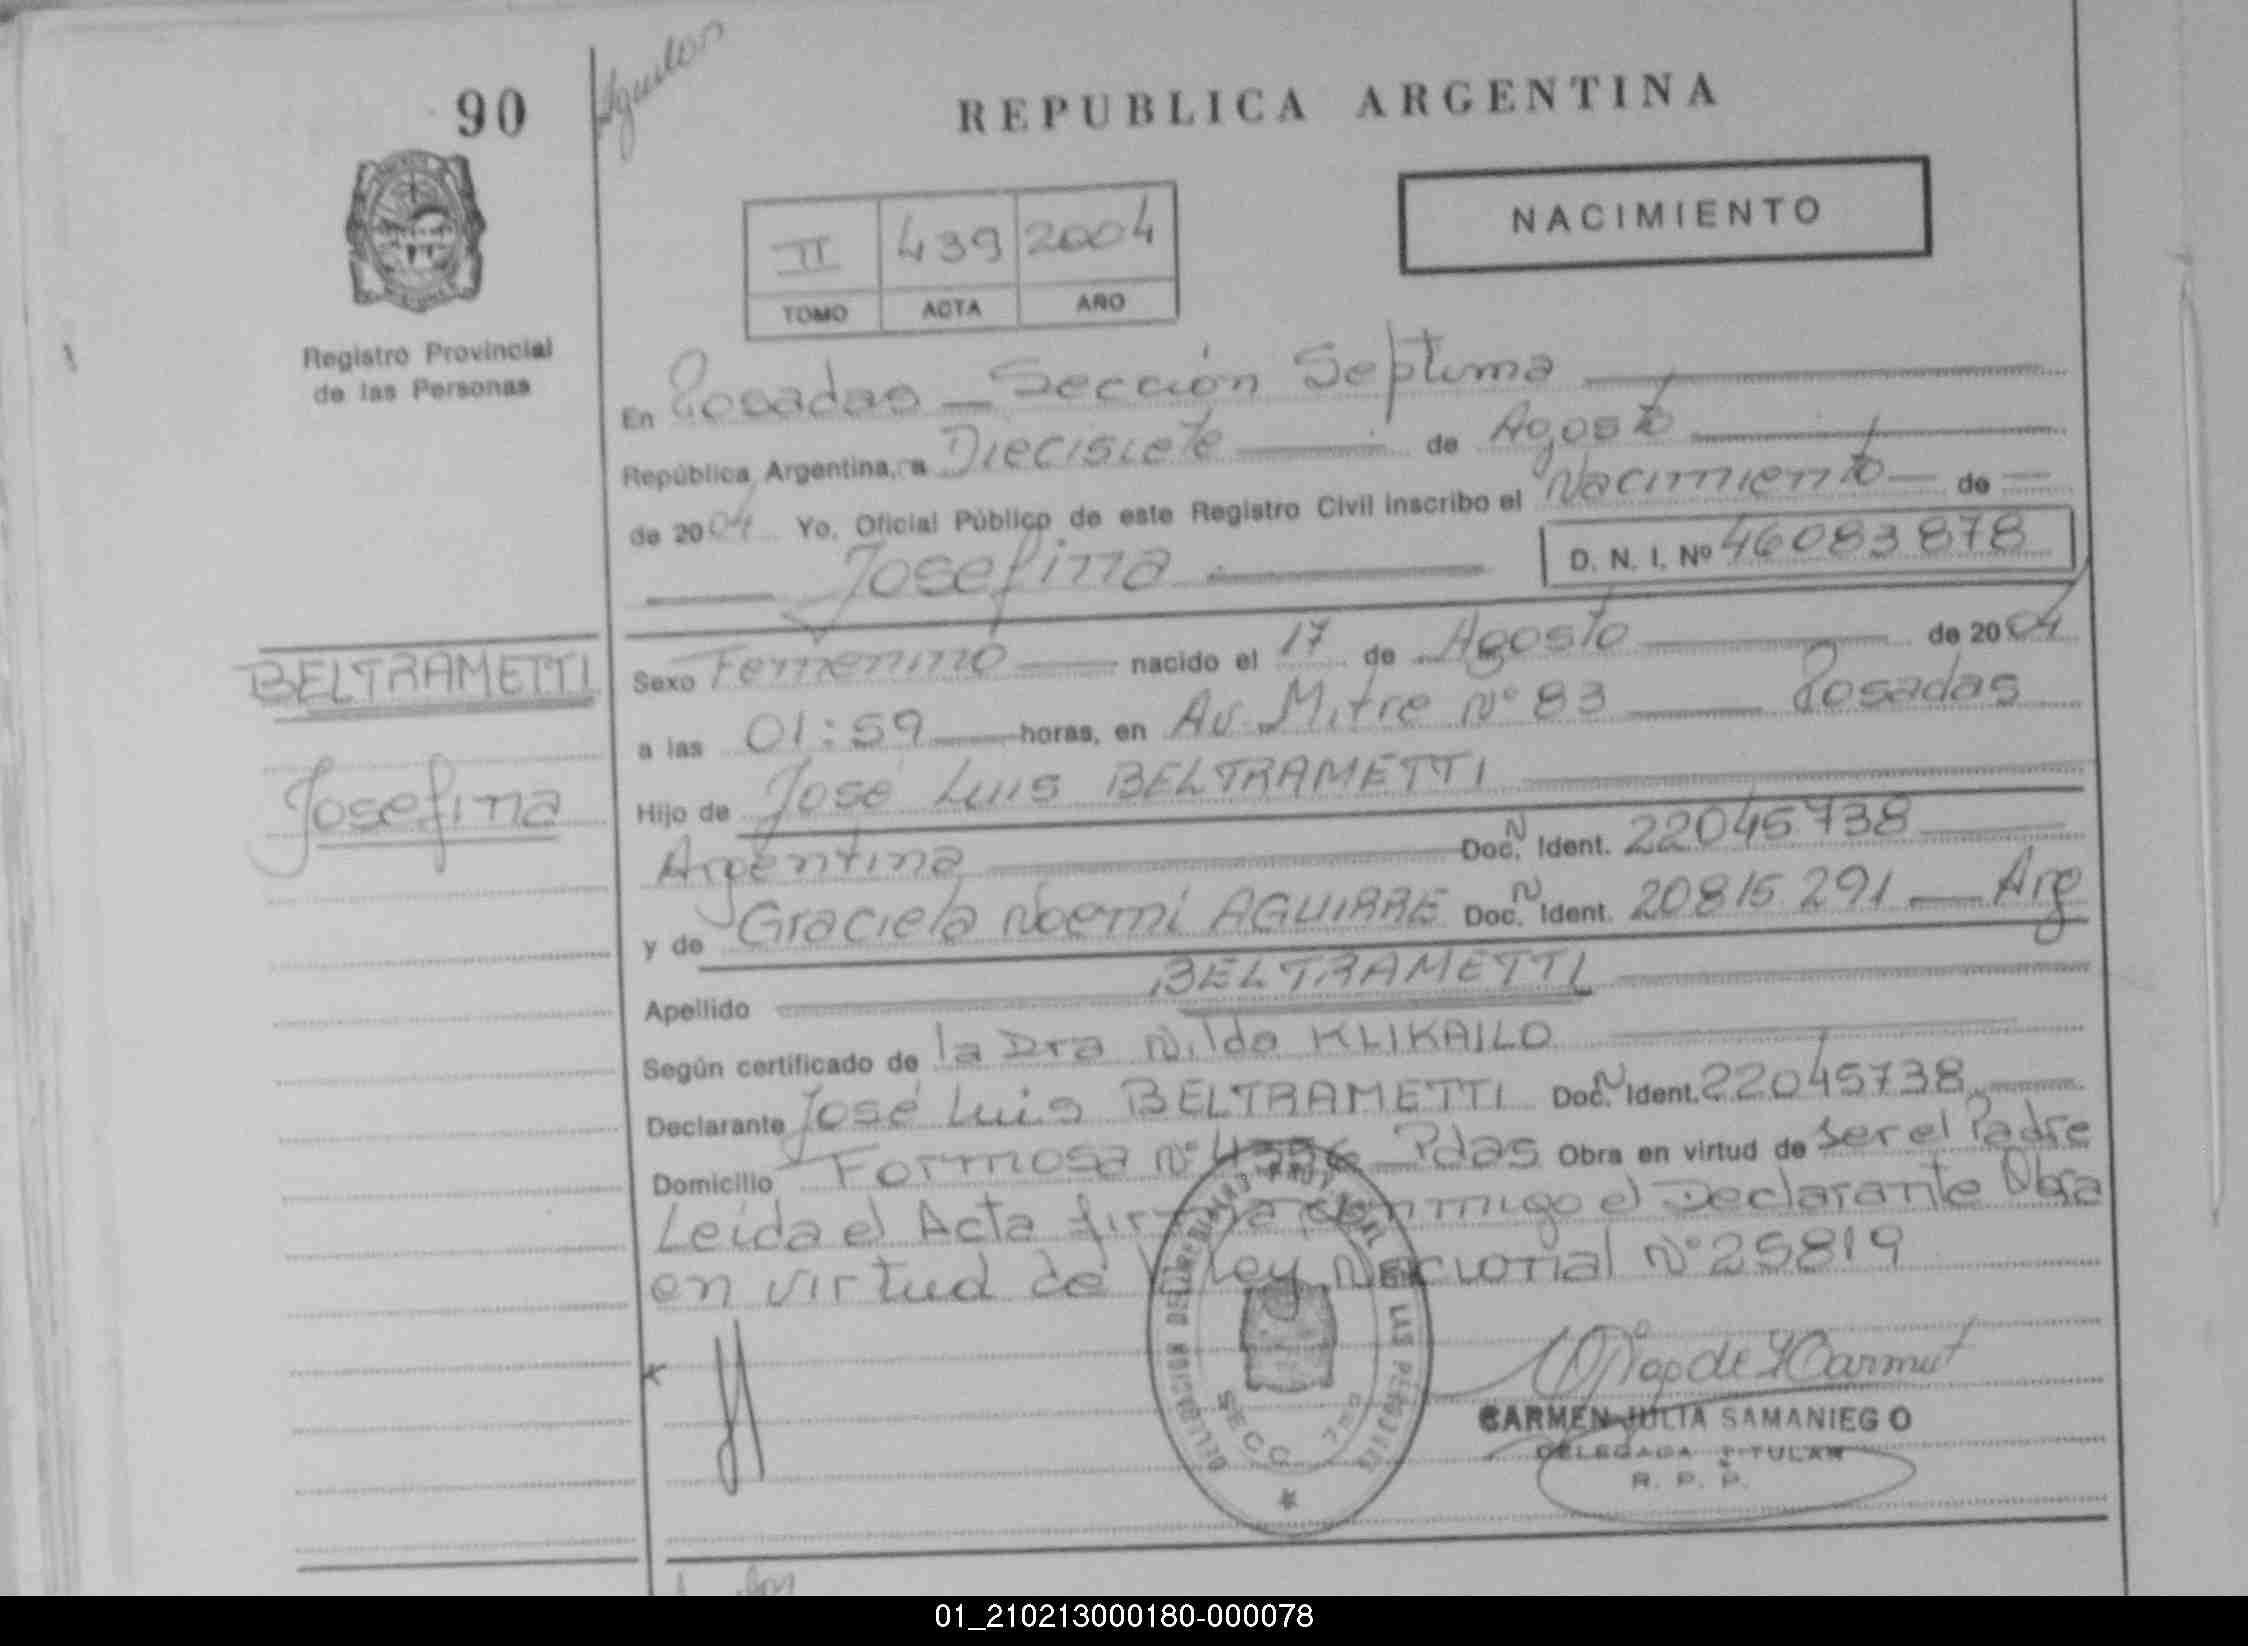 90
REPUBLICA ARGENTINA
NACIMIENTO
II 439 2004
TOMO ACTA AÑO
Registro Provincial
de las Personas
En Posadas — Sección Septima
República Argentina, a Diecisiete de Agosto
de 2004 Yo, Oficial Público de este Registro Civil inscribo el Nacimiento — de —
Josefina D. N. I. Nº 46083878
BELTRAMETTI
Josefina
Sexo Femenino nacido el 17 de Agosto de 2004
a las 01:59 horas, en Av. Mitre Nº 83 Posadas
Hijo de José Luis BELTRAMETTI
Argentina Doc. N Ident. 22045738
y de Graciela Noemí AGUIRRE Doc. N Ident. 20815.291 — Arg
Apellido BELTRAMETTI
Según certificado de la Dra Nilda KLIKAILO
Declarante José Luis BELTRAMETTI Doc. N Ident. 22045738
Domicilio Formosa Nº Pdas Obra en virtud de ser el Padre
Leída el Acta firma conmigo el Declarante Obra
en virtud de Ley Nacional Nº 25819
SECC. 7ma
CARMEN JULIA SAMANIEGO
DELEGADA TITULAR
R. P. P.
01_210213000180-000078